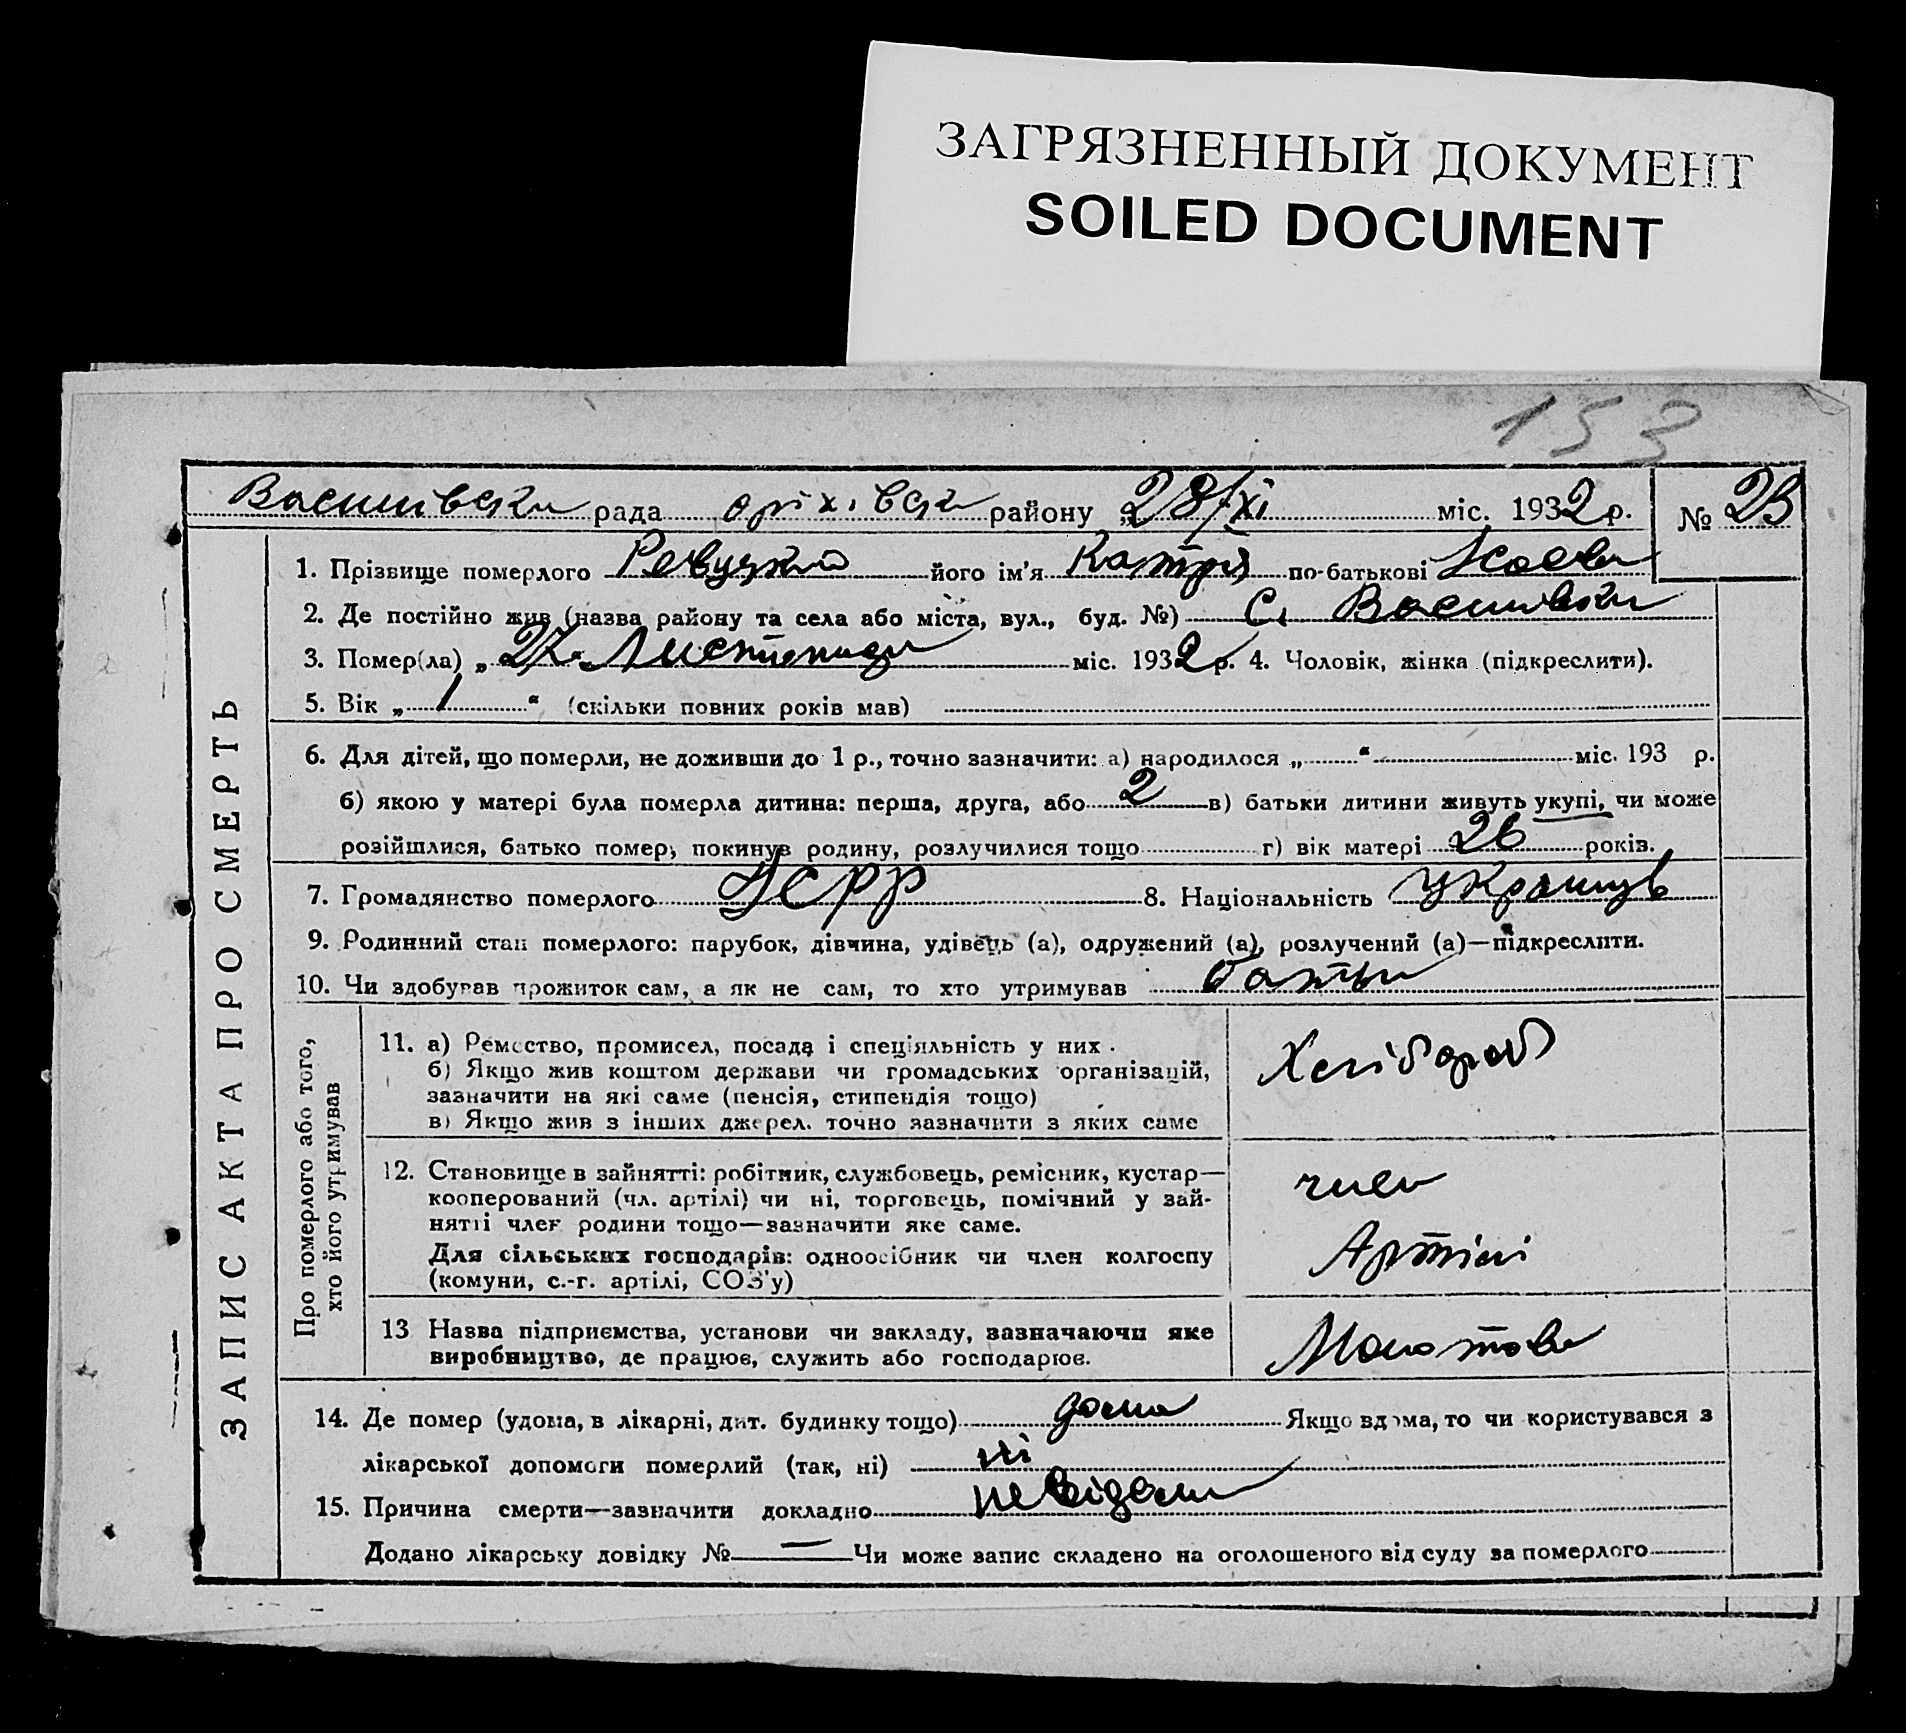 ЗАГРЯЗНЕННЫЙ ДОКУМЕНТ
SOILED DOCUMENT
153
рада оріхівська району „28/XI міс. 1932 р. № 23
ЗАПИС АКТА ПРО СМЕРТЬ
1. Прізвище померлого Ревуцький його ім'я Катря по-батькові
2. Де постійно жив (назва району та села або міста, вул., буд. №) С.
3. Помер(ла) „27“ Листопада міс. 1932 р. 4. Чоловік, жінка (підкреслити).
5. Вік „1“ (скільки повних років мав)
6. Для дітей, що померли, не доживши до 1 р., точно зазначити: а) народилося „ “ міс. 193 р.
б) якою у матері була померла дитина: перша, друга, або 2 в) батьки дитини живуть укупі, чи може
розійшлися, батько помер, покинув родину, розлучилися тощо г) вік матері 26 років.
7. Громадянство померлого УСРР 8. Національність
9. Родинний стан померлого: парубок, дівчина, удівець (а), одружений (а), розлучений (а)—підкреслити.
10. Чи здобував прожиток сам, а як не сам, то хто утримував батьки
Про померлого або того,
хто його утримував
11. а) Ремество, промисел, посада і спеціяльність у них
б) Якщо жив коштом держави чи громадських організацій,
зазначити на які саме (пенсія, стипендія тощо)
в) Якщо жив з інших джерел. точно зазначити з яких саме
Хлібороб
12. Становище в зайнятті: робітник, службовець, ремісник, кустар—
кооперований (чл. артілі) чи ні, торговець, помічний у зай-
нятті член родини тощо—зазначити яке саме.
Для сільських господарів: одноосібник чи член колгоспу
(комуни, с.-г. артілі, СОЗ'у)
член
Артілі
13 Назва підприємства, установи чи закладу, зазначаючи яке
виробництво, де працює, служить або господарює.
Молотова
14. Де помер (удома, в лікарні, дит. будинку тощо) дома Якщо вдома, то чи користувався з
лікарської допомоги померлий (так, ні) ні
15. Причина смерти—зазначити докладно невідома
Додано лікарську довідку № — Чи може запис складено на оголошеного від суду за померлого